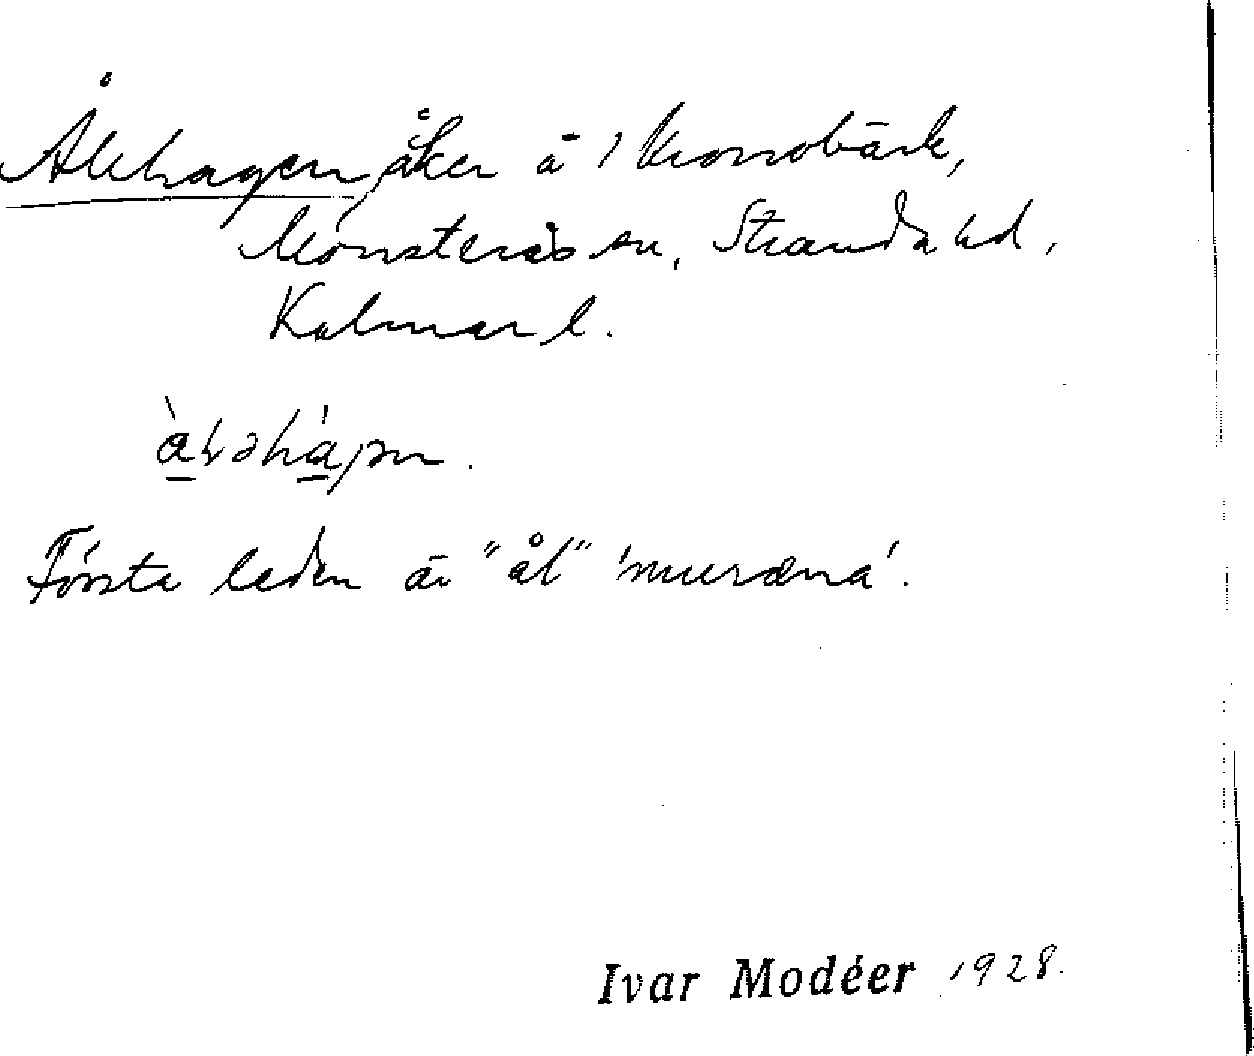 Ålehagen, åker å 1 Kronobäck,
Mönsterås sn, Stranda hd,
Kalmar l.
Förste leden är "ål" 'muræna'.
Ivar Modéer 1928.